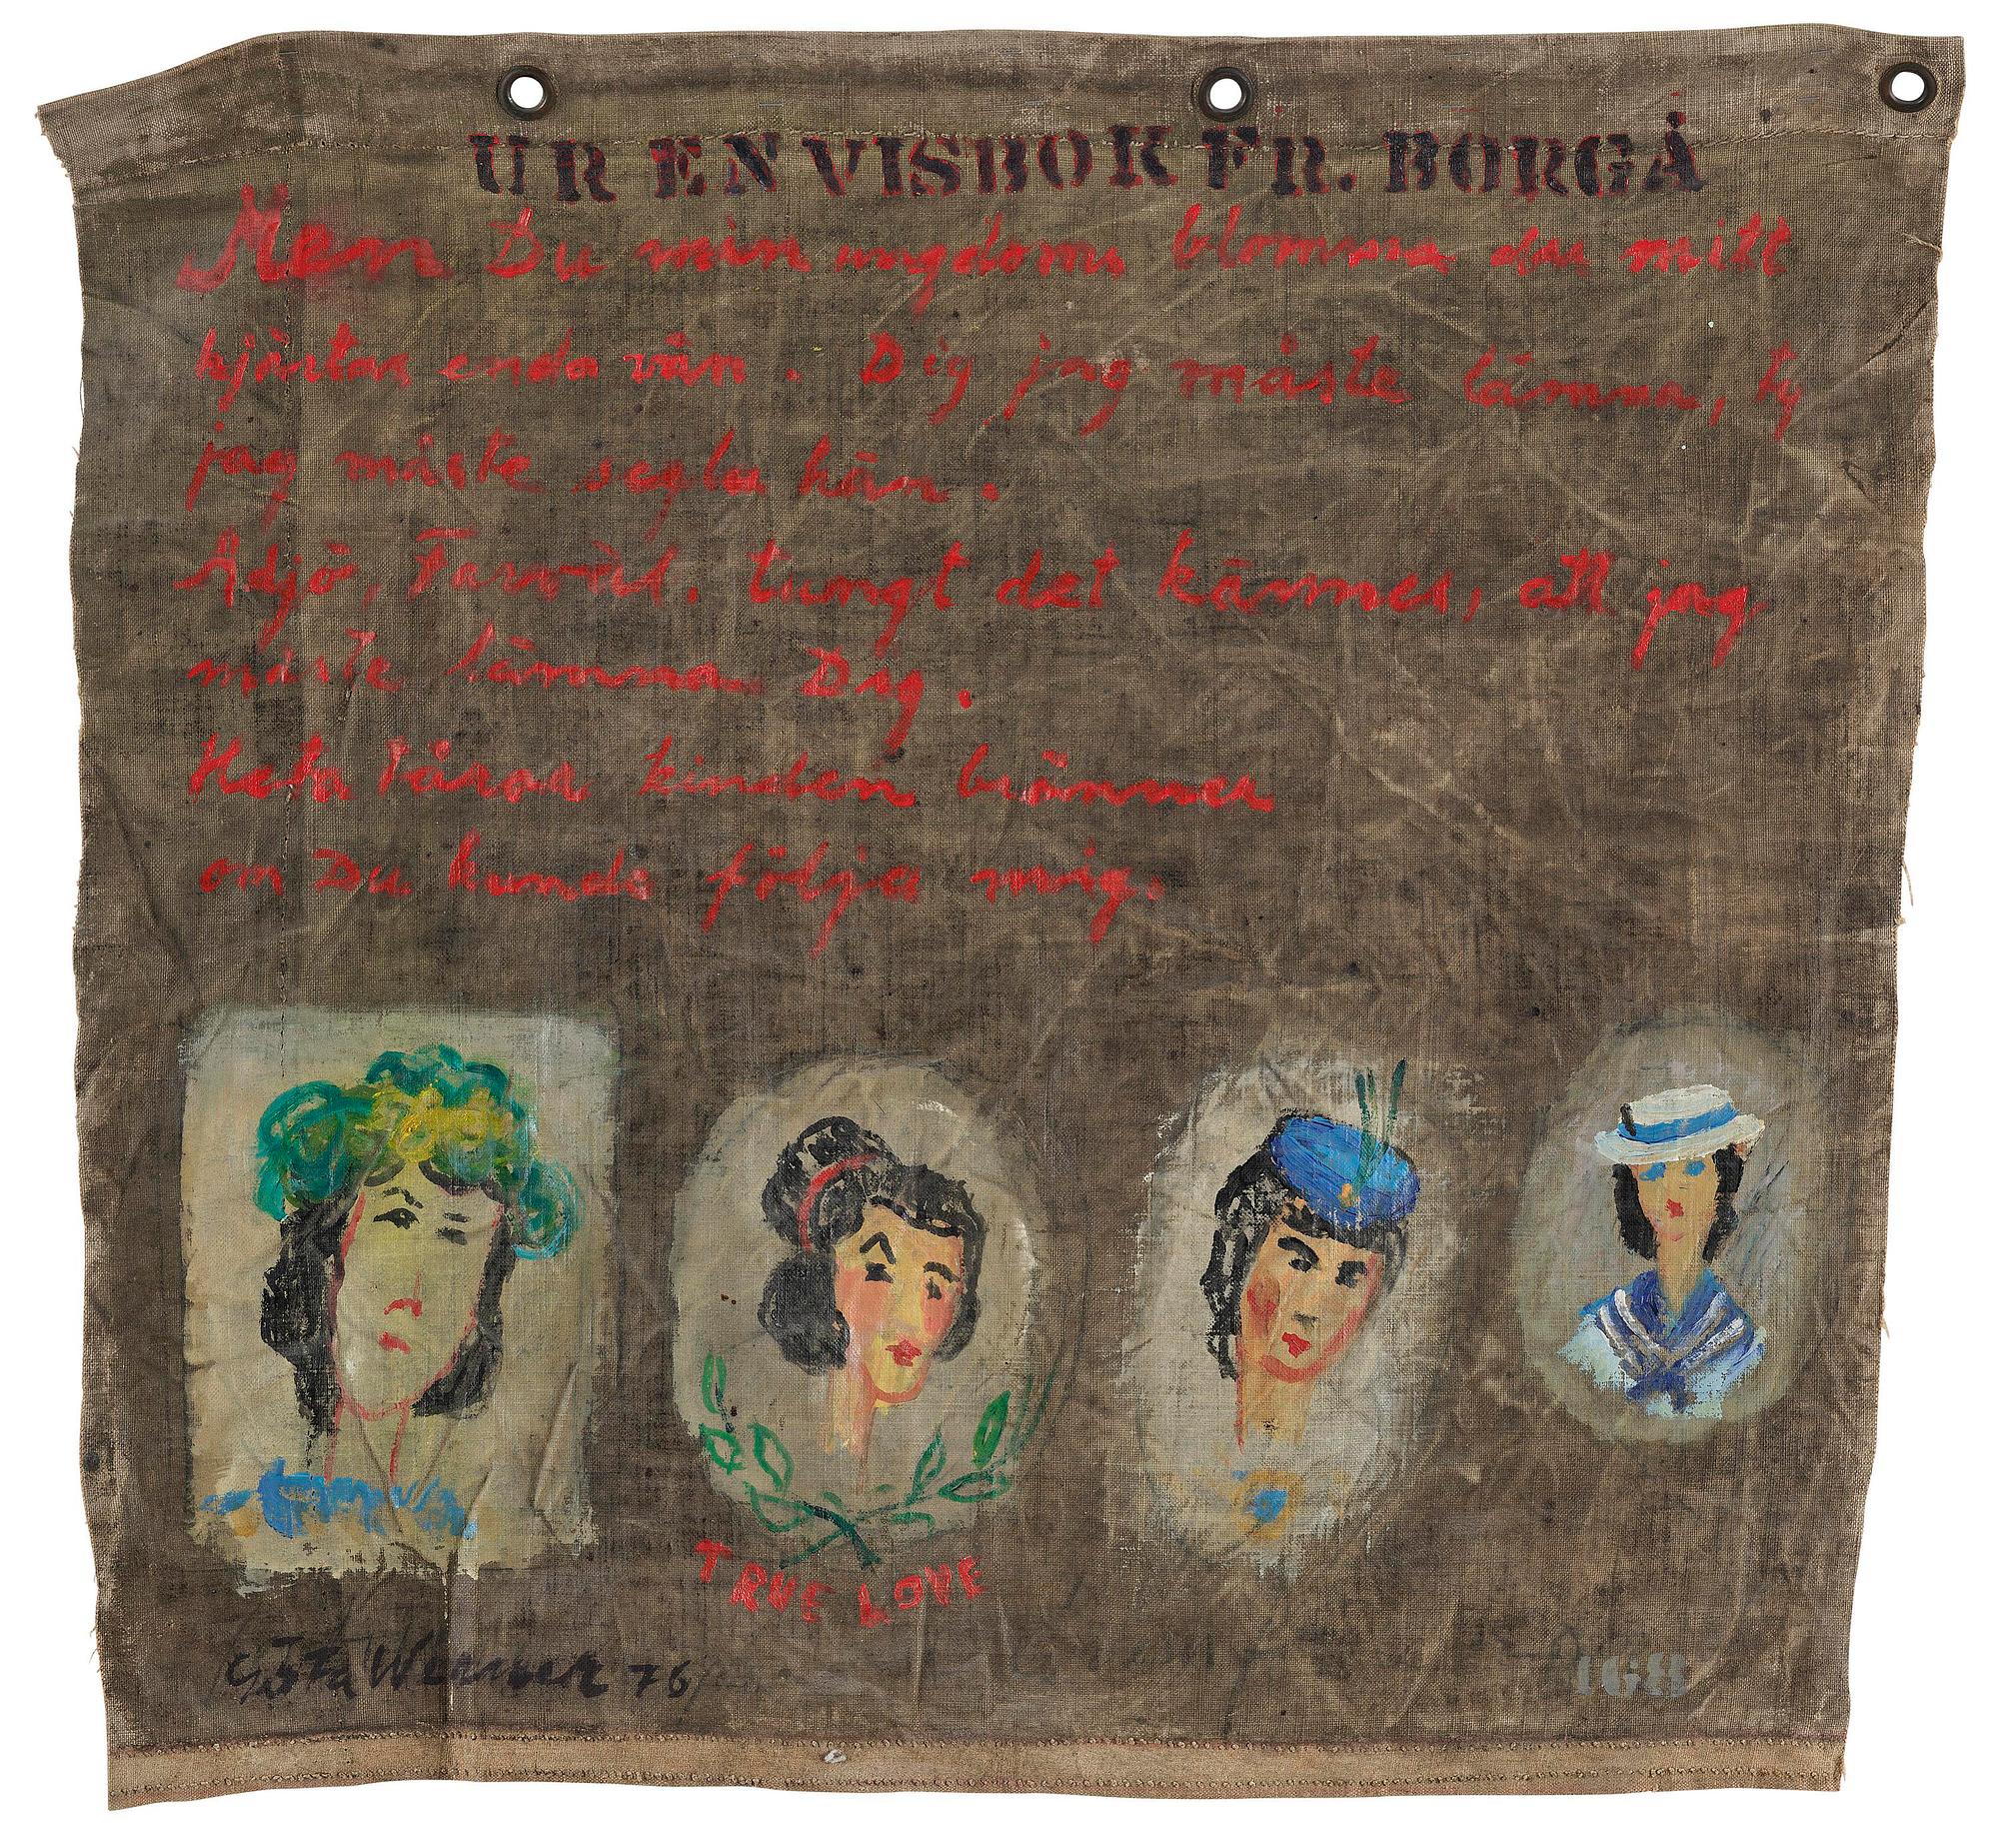 UR EN VISBOK FR. BORGÅ
Men Du min ungdoms blomma du mitt
hjärtas enda vän. Dig jag måste lämna, ty
jag måste segla hän.
Adjö, Farväl. tungt det kännes, att jag
måste lämna Dig.
Heta tårar kinden bränner
om Du kunde följa mig.
TRUE LOVE
Gösta Werner 76
168